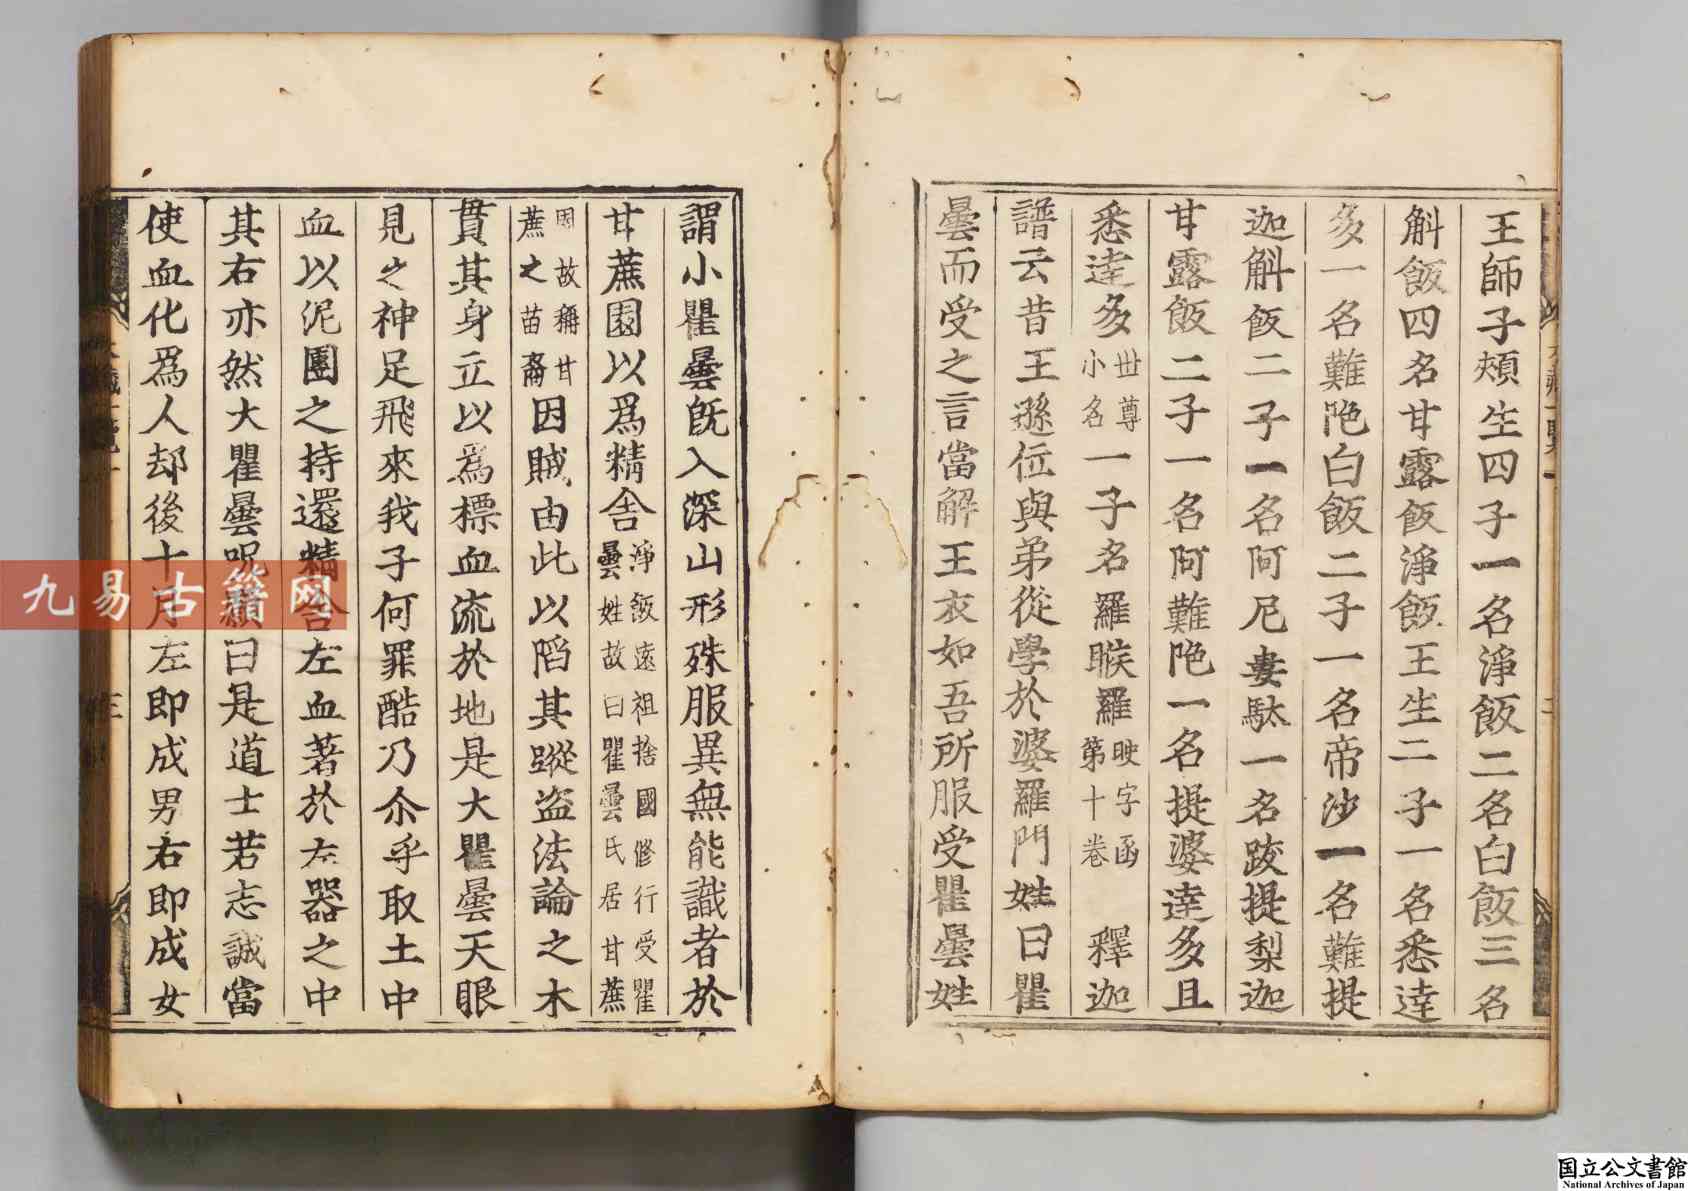 王師子頰生四子一名淨飯二名白飯三名
斛飯四名甘露飯淨飯王生二子一名悉達
多一名難陁白飯二子一名帝沙一名難提
迦斛飯二子一名阿尼婁馱一名跋提梨迦
甘露飯二子一名阿難陁一名提婆達多且
悉達多世尊小名一子名羅睺羅映字函第十卷釋迦
譜云昔王遜位與弟從學於婆羅門姓曰瞿
曇而受之言當解王衣如吾所服受瞿曇姓
謂小瞿曇既入深山形殊服異無能識者於
甘蔗園以爲精舍淨飯遠祖捨國修行受瞿曇姓故曰瞿曇氏居甘蔗
園故稱甘蔗之苗裔因賊由此以蹈其蹤盜法論之木
貫其身立以爲標血流於地是大瞿曇天眼
見之神足飛來我子何罪酷乃尒乎取土中
血以泥團之持還精舍左血著於左器之中
其右亦然大瞿曇呪願曰是道士若志誠當
使血化爲人却後十月左即成男右即成女
三
九易古籍网
国立公文書館
National Archives of Japan